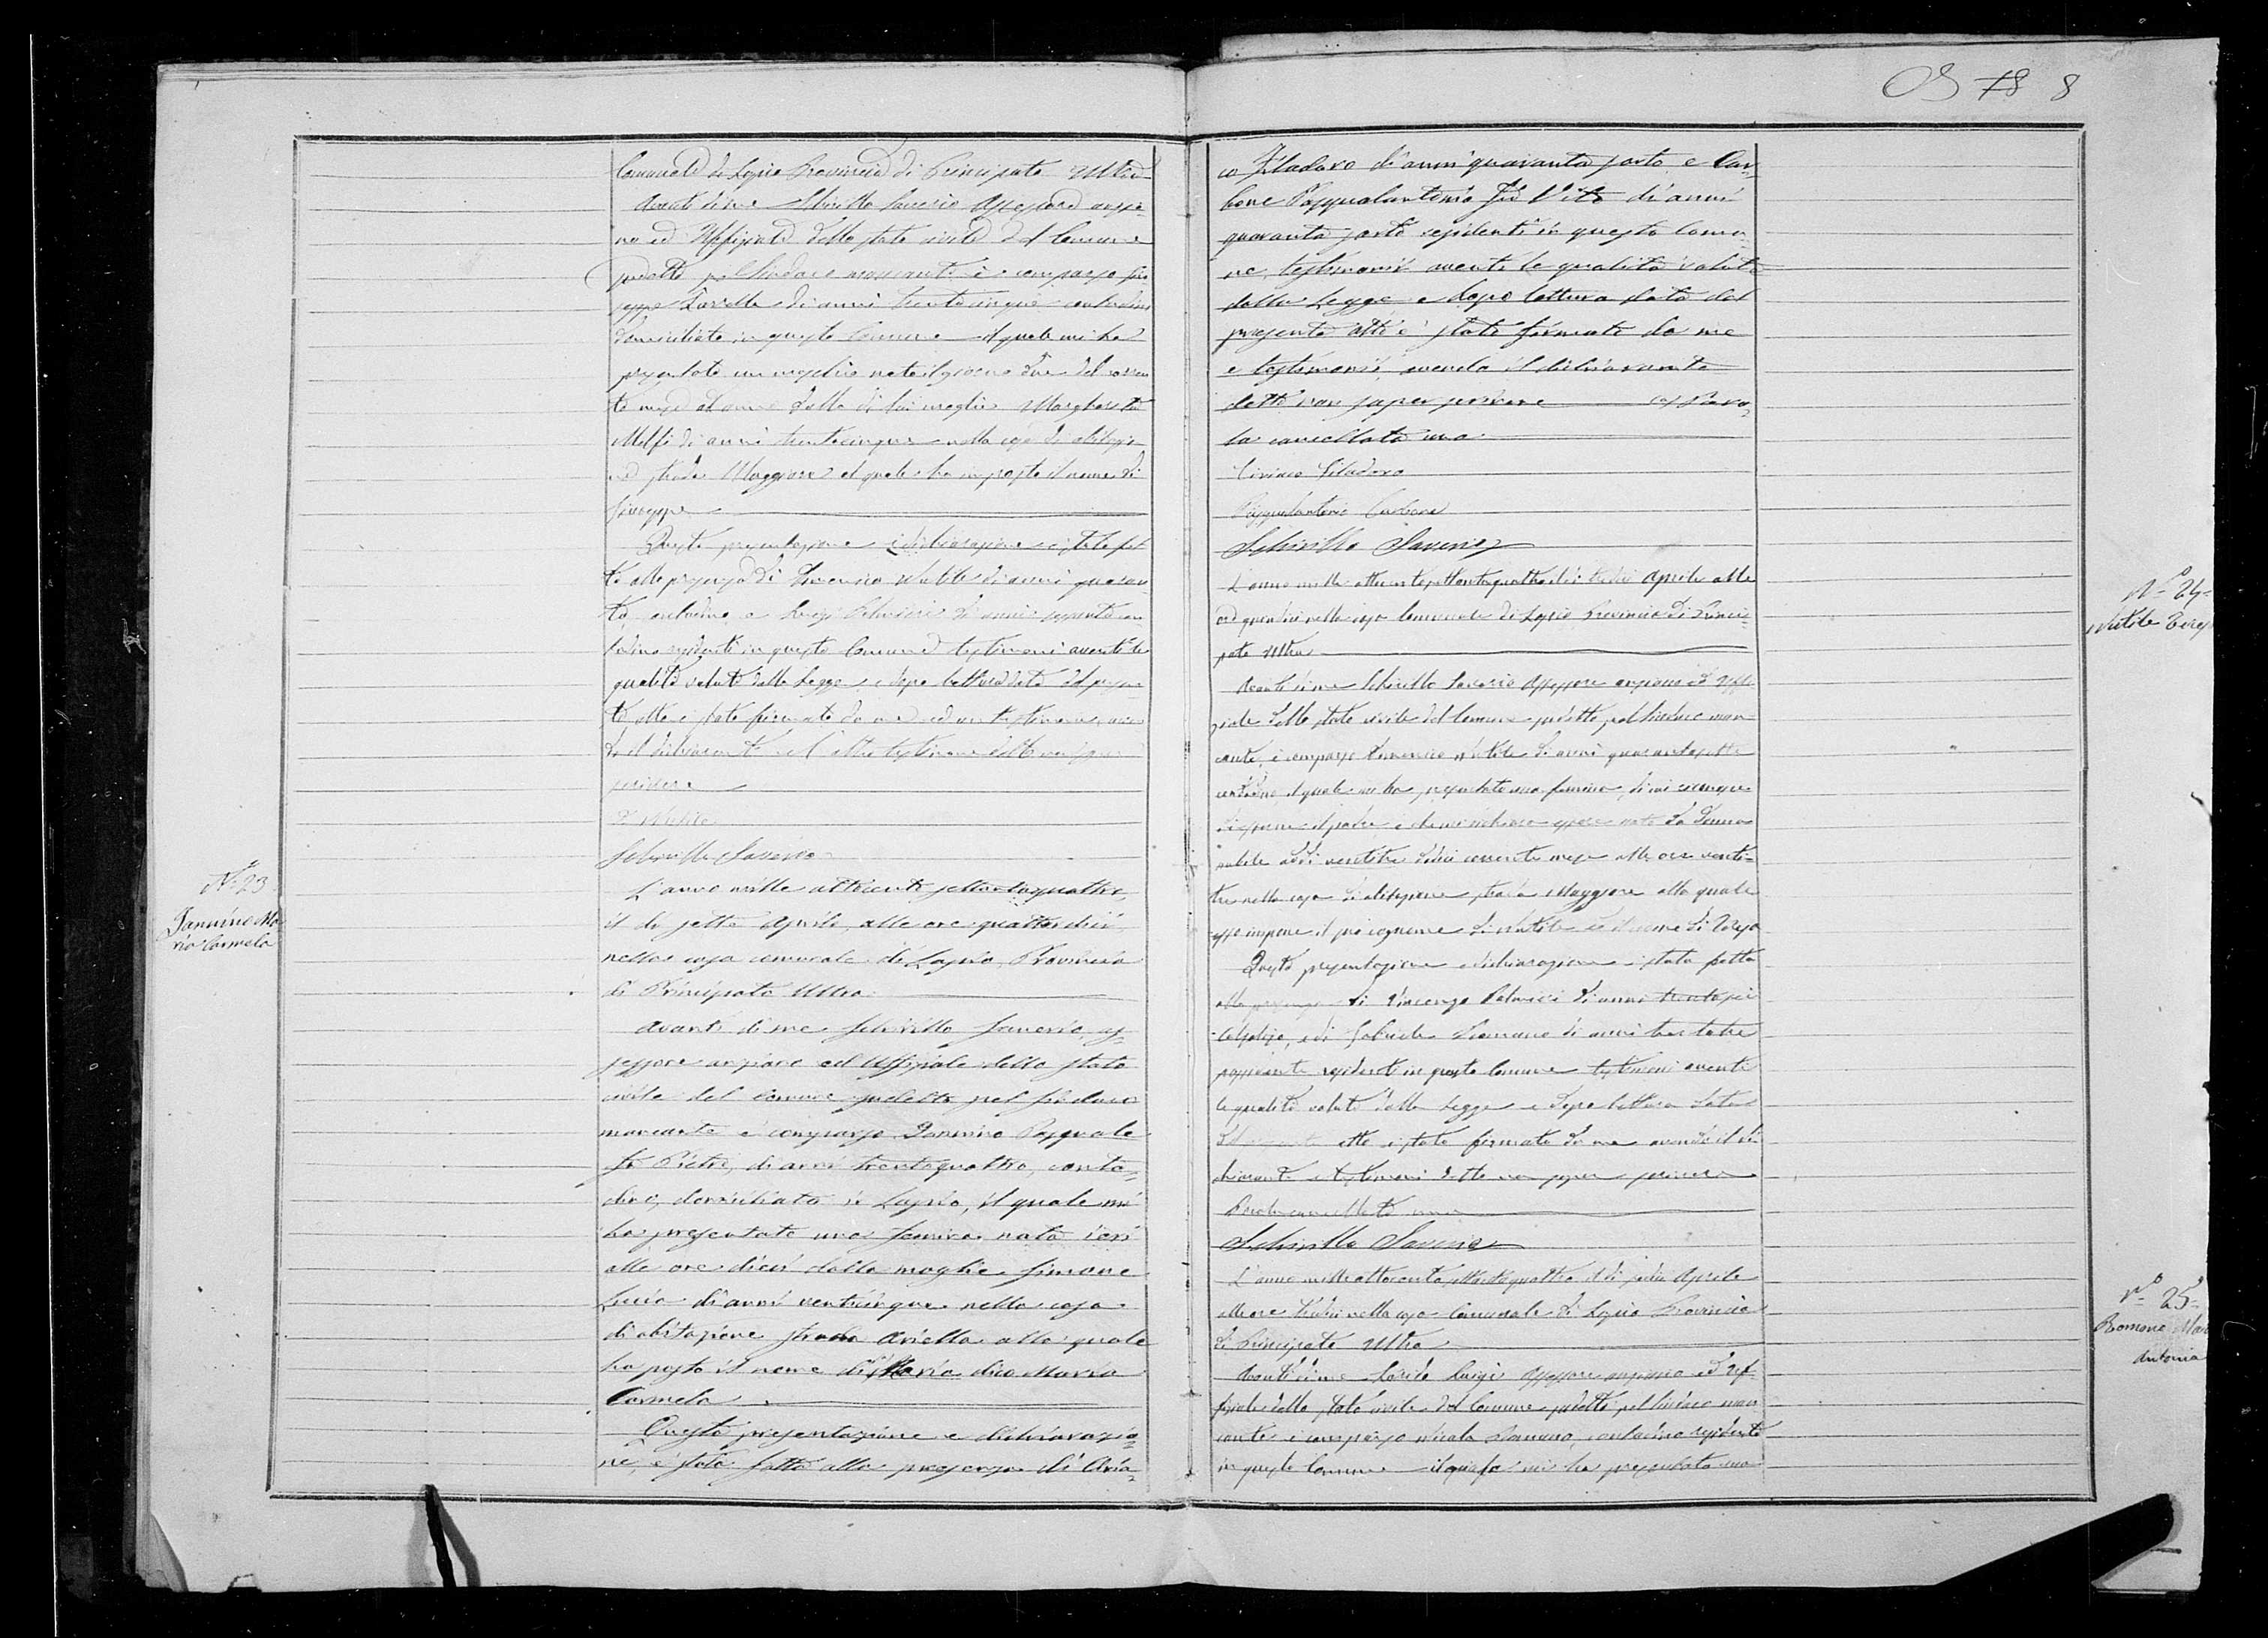 Comunale di Lapio Provincia di Principato Ultra
Avanti di me Schirillo Saverio Assessore anzia-
no ed Uffiziale dello stato civile del Comune
predetto pel Sindaco mancante è comparso Giu
seppe di anni trentacinque contadino
domiciliato in questo Comune il quale mi ha
presentato un maschio nato il giorno due del corren
te mese ed anno dalla di lui moglie Margherita
Melfi di anni trentacinque nella casa di abitazio
strada Maggiore al quale ha imposto il nome di
Giuseppe
Questa presentazione e dichiarazione è stata fat
ta alla presenza di Nutile di anni quaran
ta contadino, e Luigi di anni sessanta con
tadino residenti in questo Comune testimoni aventi le
qualità volute dalla Legge, e dopo lettura data del presen
te atto è stato firmato da me ed un testimone, aven
do il dichiarante e l'altro testimone detto non saper
scrivere
Schirillo Saverio
Nº 23
Jannino Ma
ria Carmela
L'anno mille ottocento settantaquattro,
il dì sette Aprile, alle ore quattordici,
nella casa comunale di Lapio, Provincia
di Principato Ultra
Avanti di me Schirillo Saverio, as-
sessore anziano ed Uffiziale dello Stato
civile del Comune predetto pel Sindaco
mancante è comparso Jannino Pasquale
fu Pietro, di anni trentaquattro, conta-
dino, domiciliato in Lapio, il quale mi
ha presentato una femina nata ieri
alle ore dieci dalla moglie Simone
Lucia di anni venticinque nella casa
di abitazione strada Ariella alla quale
ha posto il nome di Maria dico Maria
Carmela
Questa presentazione e dichiarazio-
ne, è stata fatta alla presenza di Ciria-
8
co Filadoro di anni quaranta sarto e Car-
bone Pasqualantonio fu Vito di anni
quaranta sarto residenti in questo Comu-
ne, testimoni aventi le qualità volute
dalla Legge e dopo lettura data del
presente atto è stato firmato da me
e testimoni, avendo il dichiarante
detto non saper scrivere Paro-
la cancellata una
Ciriaco Filadoro
Pasqualantonio Carbone
Schirillo Saverio
Nº 24
Nutile Teresa
L'anno mille ottocento settantaquattro il dì Aprile alle
ore quindici nella casa Comunale di Lapio Provincia di Princi-
pato Ultra
Avanti di me Schirillo Saverio Assessore anziano ed Uffi-
ziale dello stato civile del Comune predetto pel Sindaco man-
cante, è comparso Nutile di anni quarantasette
contadino il quale mi ha presentato una femina, di cui
il padre, e che mi dichiara essere nata da Donna
nubile corrente mese alle ore venti-
tre nella casa di abitazione strada Maggiore alla quale
esso impone il suo cognome di Nutile ed il nome di Teresa
Questa presentazione e dichiarazione è stata fatta
alla presenza di Vincenzo di anni trentasei
calzolaio, e di Gabriele Romano di anni trentatre
residenti in questo Comune testimoni aventi
le qualità volute dalla Legge e dopo lettura data
del presente atto è stato firmato da me avendo il di
chiarante e testimoni detto non saper scrivere
Parola cancellata una
Schirillo Saverio
Nº 25
Romano Maria
Antonia
L'anno mille ottocento settantaquattro il dì Aprile
alle ore nella casa Comunale di Lapio Provincia
di Principato Ultra
Avanti di me Luigi Assessore anziano ed Uf-
fiziale dello Stato civile del Comune predetto pel Sindaco man
cante è comparso Nicola Romano, contadino residente
in questo Comune il quale mi ha presentato una